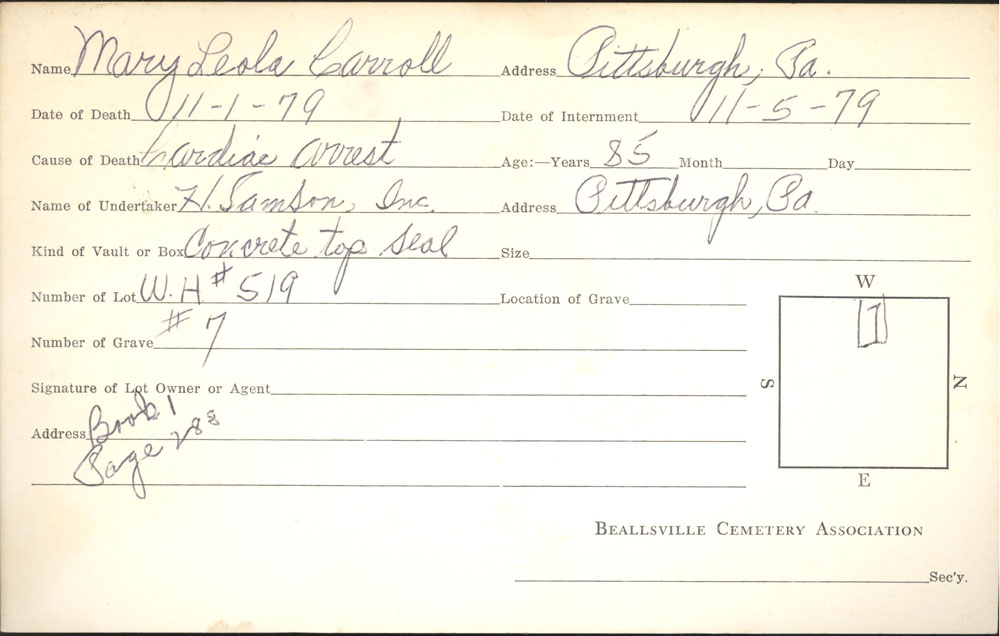 Name Mary Leola Carroll Address Pittsburgh, Pa.
Date of Death 11-1-79 Date of Internment 11-5-79
Cause of Death Cardiac arrest Age:—Years 85 Month Day
Name of Undertaker H. Samson, Inc. Address Pittsburgh, Pa.
Kind of Vault or Box Concrete top seal Size
Number of Lot W.H # 519 Location of Grave
Number of Grave # 7
Signature of Lot Owner or Agent
Address Book 1
Page 288
W
S
N
E
BEALLSVILLE CEMETERY ASSOCIATION
Sec'y.